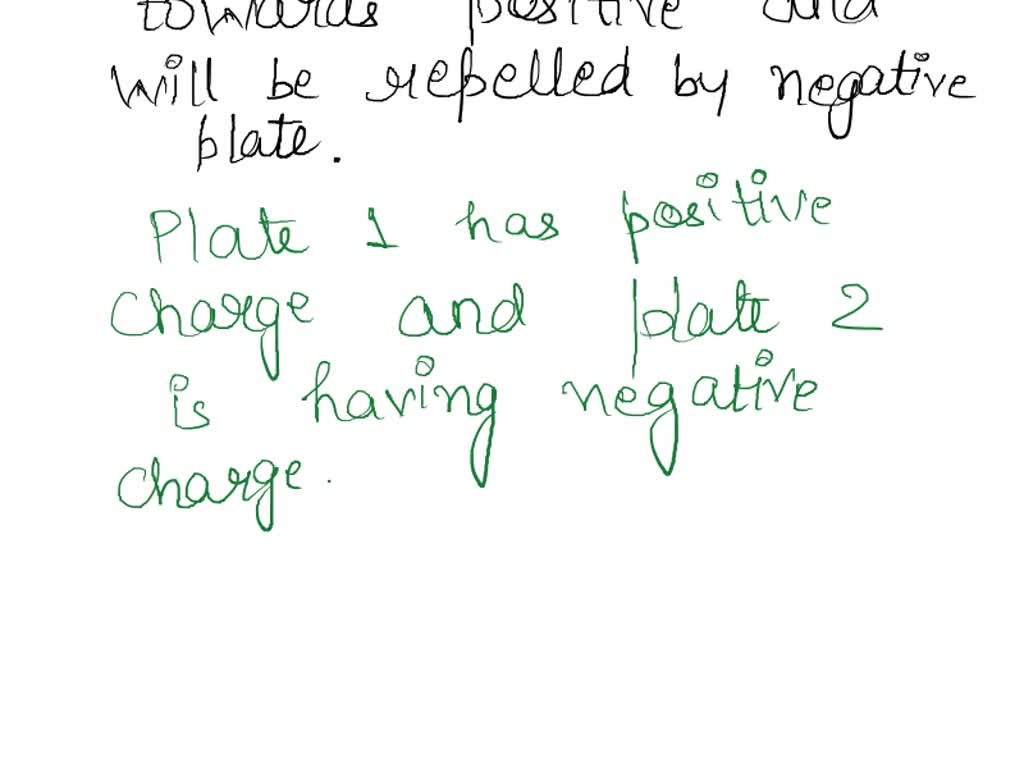 towards positive and
will be repelled by negative
plate.
Plate 1 has positive
charge and plate 2
is having negative
charge.